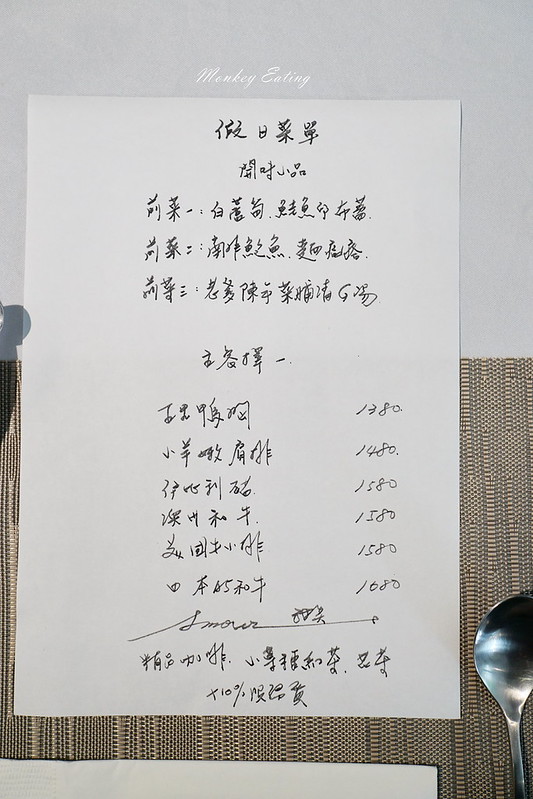 Monkey Eating
假日菜單
開味小品
前菜一:白蘆筍.鮭魚卵布蕾.
前菜二:南非鮑魚.
前菜三:老爹陳年菜脯清G湯.
主客擇一.
鴨胸 1380.
小羊嫩肩排 1480.
伊比利豬. 1580
澳州和牛. 1580
美国牛小排 1580
日本A5和牛 1680
Amour 甜点
精品咖啡.小農種紅茶.
+10%服務費